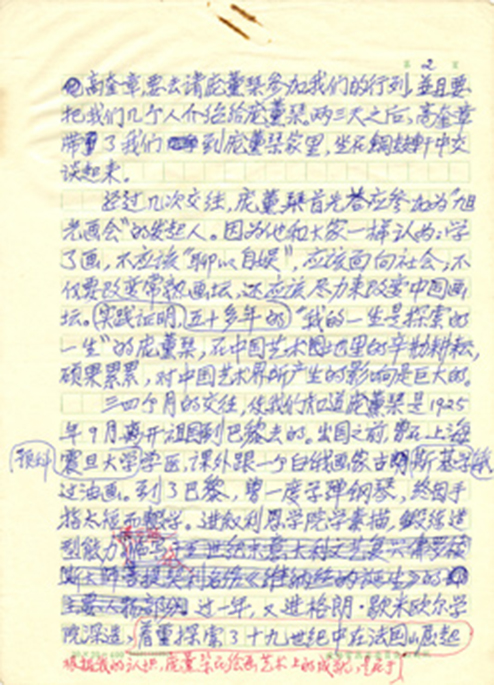 第 2 页
高奎章,要去请庞薰琹参加我们的行列,並且要
把我们几个人介绍给庞薰琹。两三天之后,高奎章
带了我们到庞薰琹家里,坐在铜鼓轩中交
谈起来。
经过几次交往,庞薰琹首先答应参加为“旭
光画会”的发起人。因为他和大家一样认为:学
了画,不应该“聊以自娱”,应该面向社会;不
仅要改变常熟画坛,还应该尽力来改变中国画
坛。实践证明,五十多年的“我的一生是探索的
一生”的庞薰琹,在中国艺术园地里的辛勤耕耘,
硕果累累,对中国艺术界所产生的影响是巨大的。
三四个月的交往,使我们知道庞薰琹是1925
年9月离开祖国到巴黎去的。出国之前,曾在上海
预科
震旦大学学医,课外跟一个白俄画家古斯基学
过油画。到了巴黎,曾一度学弹钢琴,终因手
指太短而辍学。进叙利恩学院学素描,锻炼造
型能力
过一年,又进格朗·歇米欧尔学
院深造,着重探索了十九世纪中在法国崛起
根据我的认识,庞薰琹在绘画艺术上的成就,